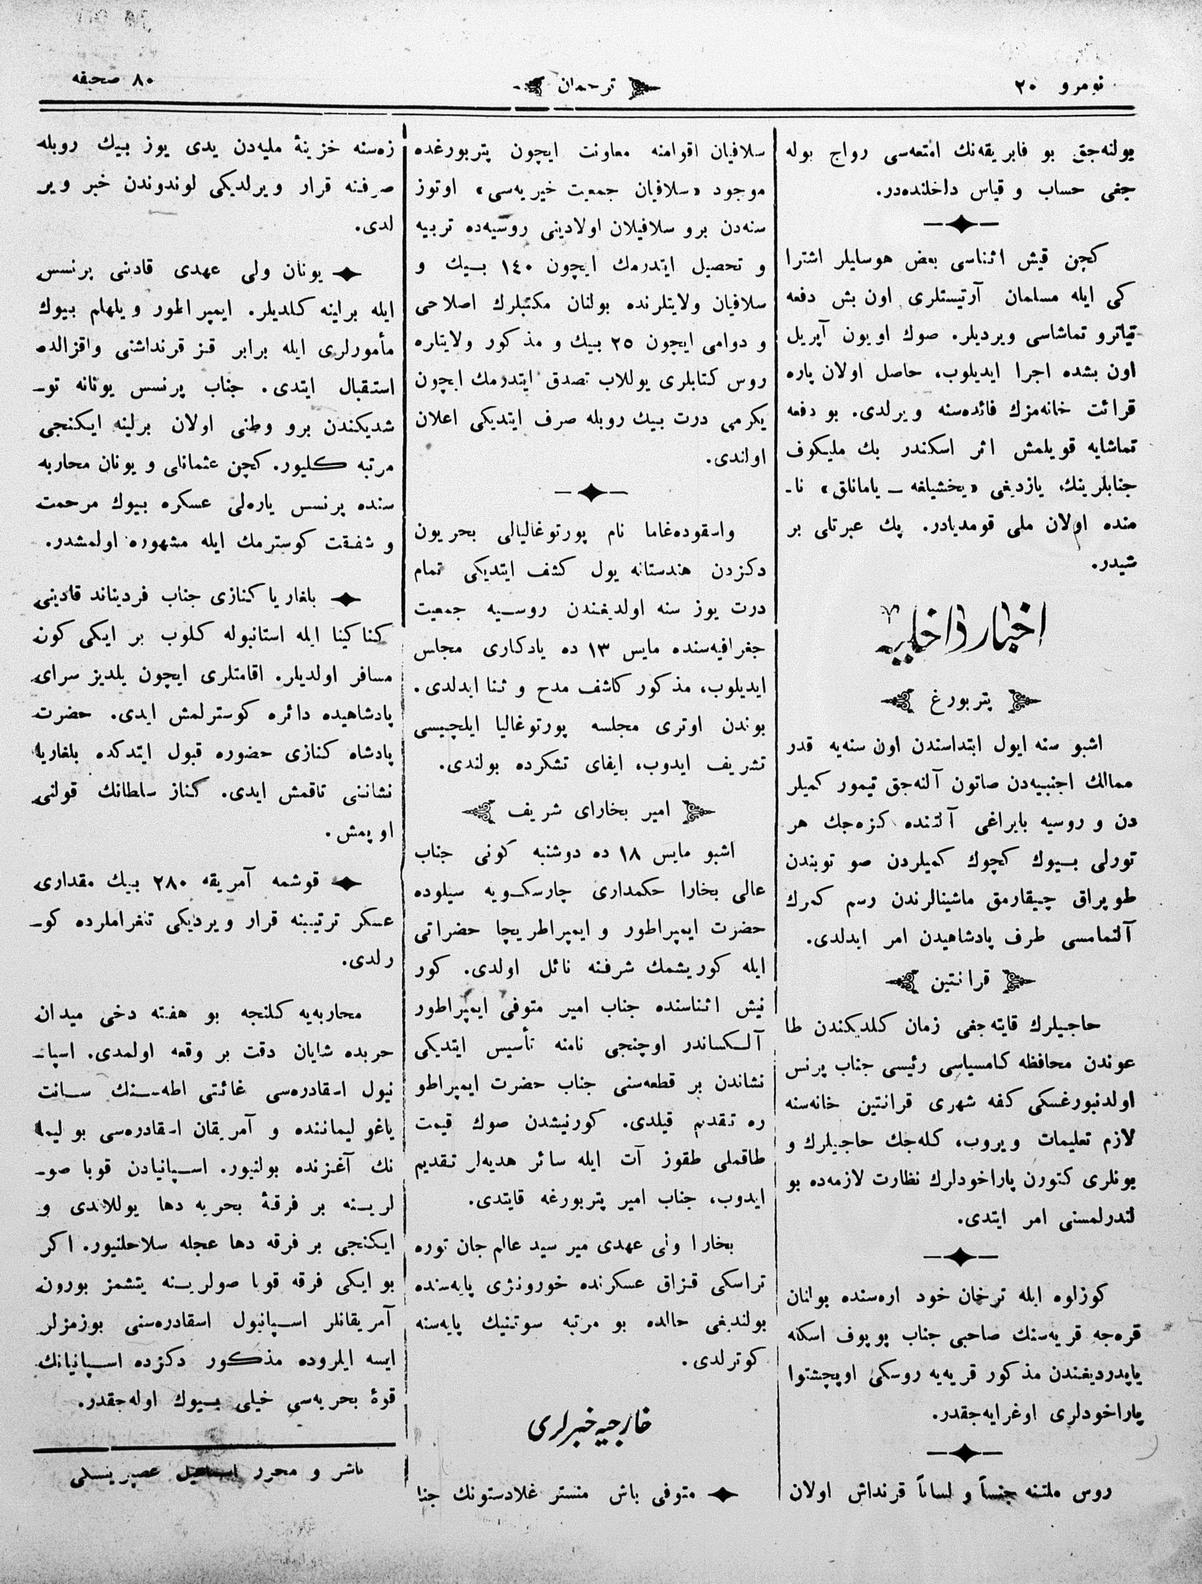 نومرو ٢٠
ترجمان
٨٠ صحيفه
يولنه‌جق بو فابريقه‌نك امتعه‌سى رواج بوله
جغى حساب و قياس داخلنده‌در.
كچن قيش اثناسى بعض هوسليلر اشترا
كى ايله مسلمان آرتيستلرى اون بش دفعه
تياترو تماشاسى ويرديلر. صوك اويون آپريل
اون بشده اجرا ايديلوب، حاصل اولان پاره
قرائت خانه‌مزك فائده‌سنه ويرلدى. بو دفعه
تماشايه قويلمش اثر اسكندر بك مليكوف
جنابلرينك، يازديغى «يخشيلغه ــ يامانلق» نا-
منده اولان ملى قومديادر. پك عبرتلى بر
شيدر.
اخبار داخليه
پتربورغ
اشبو سنه ايول ابتداسندن اون سنه‌يه قدر
ممالك اجنبيه‌دن صاتون آلنه‌جق تيمور كميلر
دن و روسيه بايراغى آلتنده كزه‌جك هر
تورلى بيوك كچوك كميلردن صو توبندن
طوپراق چيقارمق ماشينالرندن رسم كمرك
آلنمامسى طرف پادشاهيدن امر ايدلدى.
قرانتين
حاجيلرك قايته‌جغى زمان كلديكندن طا
عوندن محافظه كامسياسى رئيسى جناب پرنس
اولدنبورغسكى كفه شهرى قرانتين خانه‌سنه
لازم تعليمات ويروب، كله‌جك حاجيلرك و
بونلرى كتورن پاراخودلرك نظارت لازمه‌ده بو
لندرلمسنى امر ايتدى.
كوزلوه ايله ترخان خود اره‌سنده بولنان
قره‌جه قريه‌سنك صاحبى جناب پوپوف اسكله
ياپدرديغندن مذكور قريه‌يه روسكى اوپچشتوا
پاراخودلرى اوغرايه‌جقدر.
روس ملتنه جنساً و لساناً قرنداش اولان
سلافيان اقوامنه معاونت ايچون پتربورغده
موجود «سلافيان جمعيت خيريه‌سى» اوتوز
سنه‌دن برو سلافيلان اولادينى روسيه‌ده تربيه
و تحصيل ايتدرمك ايچون ١٤٠ بيك و
سلافيان ولايتلرنده بولنان مكتبلرك اصلاحى
و دوامى ايچون ٢٥ بيك و مذكور ولايتلره
روس كتابلرى يوللاب تصدق ايتدرمك ايچون
يكرمى درت بيك روبله صرف ايتديكى اعلان
اولندى.
واسقوده‌غاما نام پورتوغاليالى بحريون
دكزدن هندستانه يول كشف ايتديكى تمام
درت يوز سنه اولديغندن روسيه جمعيت
جغرافيه‌سنده مايس ١٣ ده يادكارى مجلس
ايديلوب، مذكور كاشف مدح و ثنا ايدلدى.
بوندن اوترى مجلسه پورتوغاليا ايلچيسى
تشريف ايدوب، ايفاى تشكرده بولندى.
امير بخاراى شريف
اشبو مايس ١٨ ده دوشنبه كونى جناب
عالى بخارا حكمدارى چارسكويه سيلوده
حضرت ايمپراطور و ايمپراطريچا حضراتى
ايله كوريشمك شرفنه نائل اولدى. كور
نيش اثناسنده جناب امير متوفى ايمپراطور
آلكساندر اوچنجى نامنه تأسيس ايتديكى
نشاندن بر قطعه‌سنى جناب حضرت ايمپراطو
ره تقديم قيلدى. كورنيشدن صوك قيمت
طاقملى طقوز آت ايله سائر هديه‌لر تقديم
ايدوب، جناب امير پتربورغه قايتدى.
بخارا ولى عهدى مير سيد عالم جان توره
تراسكى قزاق عسكرنده خورونژى پايه‌سنده
بولنديغى حالده بو مرتبه سوتنيك پايه‌سنه
كوترلدى.
خارجيه خبرلرى
متوفى باش منستر غلادستونك جنا
زه‌سنه خزينۀ مليه‌دن يدى يوز بيك روبله
صرفنه قرار ويرلديكى لوندوندن خبر وير
لدى.
يونان ولى عهدى قادينى پرنسس
ايله برلينه كلديلر. ايمپراطور ويلهلم بيوك
مأمورلرى ايله برابر قز قرنداشنى واقزالده
استقبال ايتدى. جناب پرنسس يونانه تو-
شديكندن برو وطنى اولان برلينه ايكنجى
مرتبه كليور. كچن عثمانلى و يونان محاربه
سنده پرنسس ياره‌لى عسكره بيوك مرحمت
و شفقت كوسترمك ايله مشهوره اولمشدر.
بلغاريا كنازى جناب فرديناند قادينى
كناكينا ايله استانبوله كلوب بر ايكى كون
مسافر اولديلر. اقامتلرى ايچون يلديز سراى
پادشاهيده دائره كوسترلمش ايدى. حضرت
پادشاه كنازى حضوره قبول ايتدكده بلغاريا
نشاننى تاقمش ايدى. كناز سلطانك قولنى
اوپمش.
قوشمه آمريقه ٢٨٠ بيك مقدارى
عسكر ترتيبنه قرار ويرديكى تلغراملرده كو-
رلدى.
محاربه‌يه كلنجه بو هفته دخى ميدان
حربده شايان دقت بر وقعه اولمدى. اسپا-
نيول اسقادره‌سى غائتى اطه‌سنك سانت
ياغو ليماننده و آمريقان اسقادره‌سى بو ليما
نك آغزنده بولنيور. اسپانيادن قوبا صو-
لرينه بر فرقۀ بحريه دها يوللاندى و
ايكنجى بر فرقه دها عجله سلاحلنيور. اكر
بو ايكى فرقه قوبا صولرينه يتشمز بورون
آمريقانلر اسپانيول اسقادره‌سنى بوزمزلر
ايسه ايلروده مذكور دكزده اسپانيانك
قوۀ بحريه‌سى خيلى بيوك اوله‌جقدر.
ناشر و محرر اسماعيل غصپرينسكى